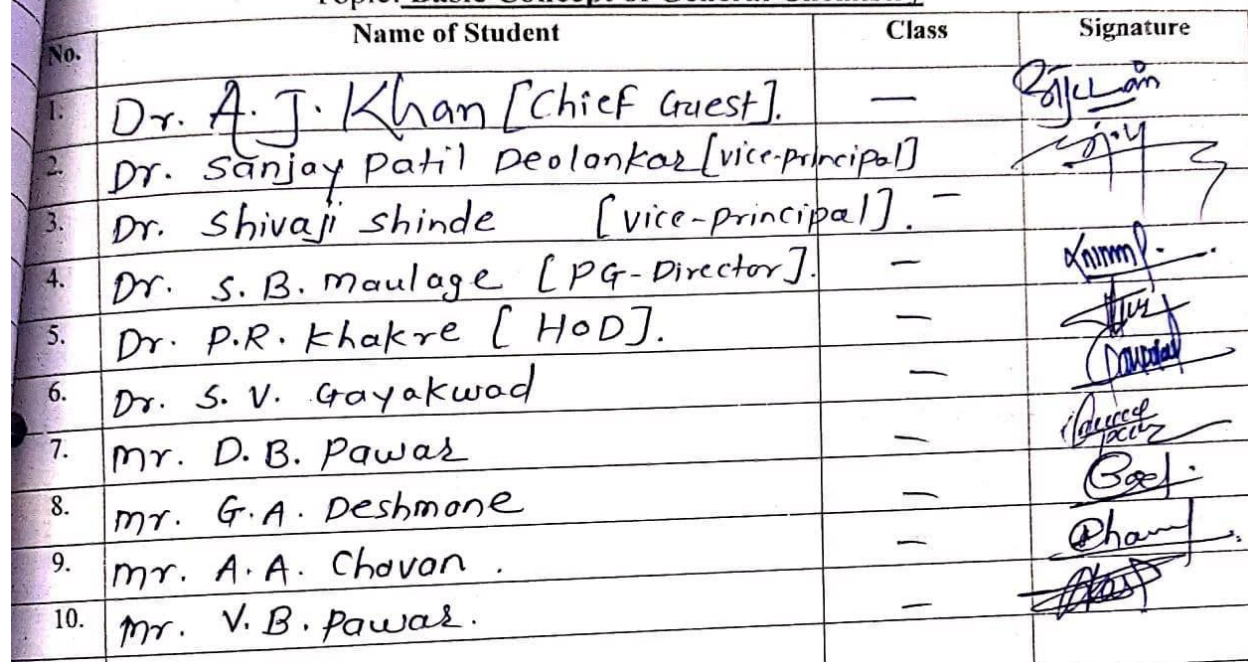 Topic: Basic Concept of General Chemistry
No. Name of Student Class Signature
1. Dr. A. J. Khan [Chief Guest]. —
2. Dr. Sanjay Patil Deolankar [vice-principal]
3. Dr. Shivaji Shinde [vice-principal]. —
4. Dr. S. B. Maulage [PG-Director]. —
5. Dr. P.R. Khakre [HoD]. —
6. Dr. S. V. Gayakwad —
7. Mr. D. B. Pawar —
8. Mr. G. A. Deshmane —
9. Mr. A. A. Chavan . —
10. Mr. V. B. Pawar. —